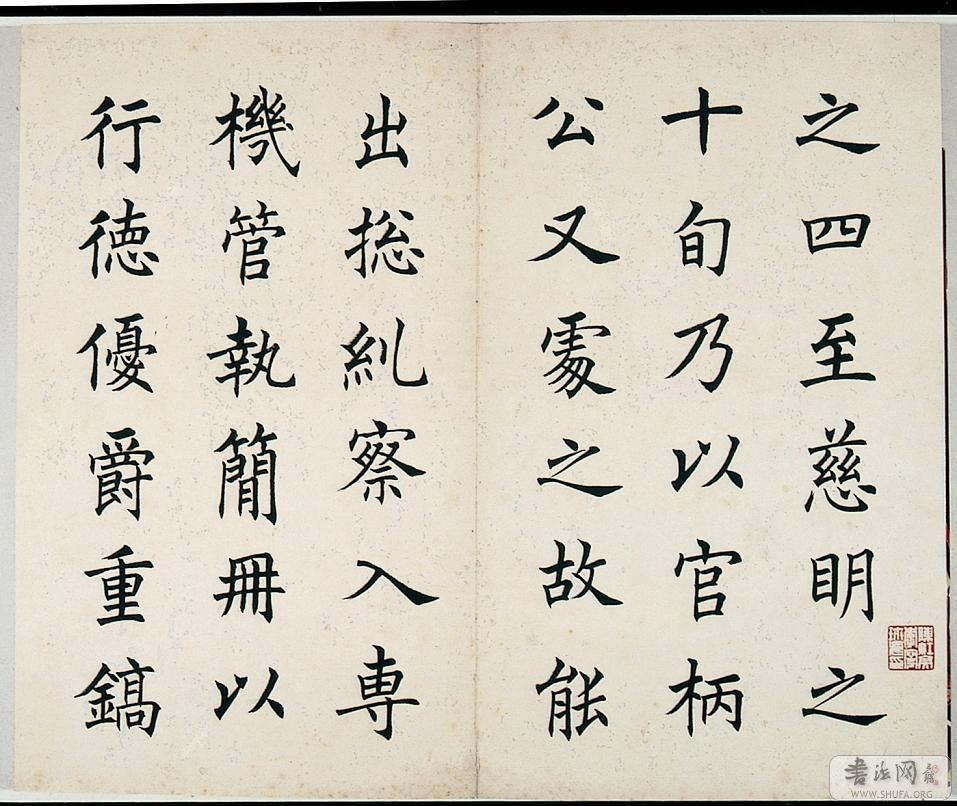 之四至慈明之
十旬乃以官柄
公又處之故能
出揔糺察入專
機管執簡冊以
行德優爵重鎬
書法网
WWW.SHUFA.ORG